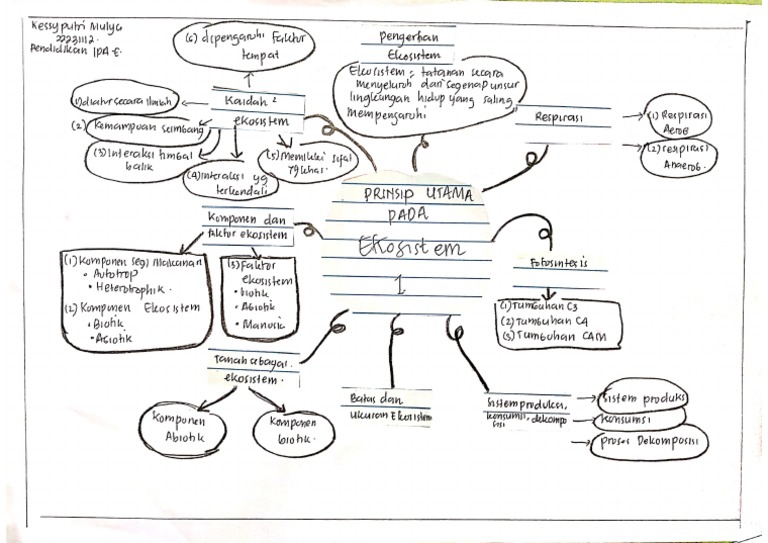 Kessy putri Mulya
22231112.
Pendidikan IPA E.
(6) dipengaruhi Faktor
tempat
Kaidah²
ekosistem
(1) diatur secara ilmiah
(2) Kemampuan seimbang
(3) Interaksi timbal
balik
(4) Interaksi yg
terkendali
(5) Memiliki sifat
yg khas.
pengertian
Ekosistem
Ekosistem : tatanan secara
menyeluruh dari segenap unsur
lingkungan hidup yang saling
mempengaruhi
Respirasi
(1) Respirasi
Aerob
(2) respirasi
Anaerob.
PRINSIP UTAMA
PADA
EKosistem
1
Komponen dan
faktor ekosistem
(1) Komponen segi Makanan
• Autotrop
• Heterotrophik.
(2) Komponen Ekosistem
• Biotik
• Abiotik
(3) Faktor
ekosistem
• biotik
• Abiotik
• Manusia
Fotosintesis
(1) Tumbuhan C3
(2) Tumbuhan C4
(3) Tumbuhan CAM
Tanah sebagai
ekosistem.
Komponen
Abiotik
Komponen
biotik.
Batas dan
Ukuran Ekosistem
Sistem produksi,
konsumsi, dekompo
sisi
Sistem produksi
Konsumsi
proses Dekomposisi